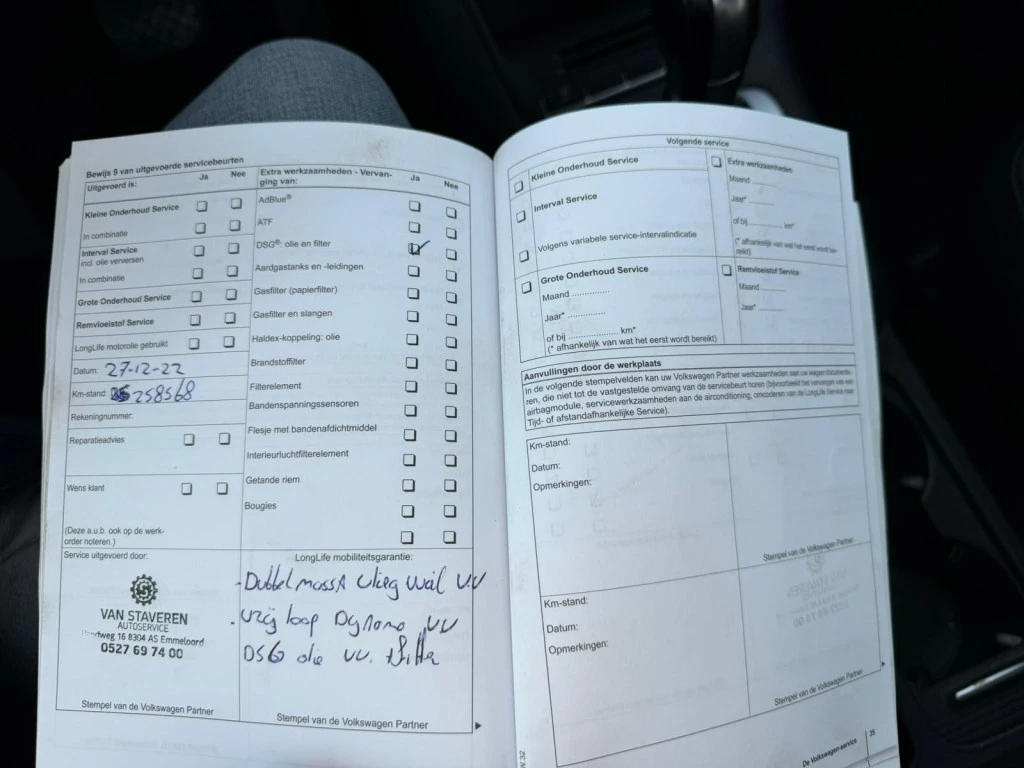 Bewijs 9 van uitgevoerde servicebeurten
Uitgevoerd is:
Ja
Nee
Kleine Onderhoud Service
In combinatie
Interval Service
incl. olie verversen
In combinatie
Grote Onderhoud Service
Remvloeistof Service
LongLife motorolie gebruikt
Datum: 27-12-22
Km-stand: 258568
Rekeningnummer:
Reparatieadvies
Wens klant
(Deze a.u.b. ook op de werk-
order noteren.)
Extra werkzaamheden - Vervan-
ging van:
Ja
Nee
AdBlue®
ATF
DSG®: olie en filter
Aardgastanks en -leidingen
Gasfilter (papierfilter)
Gasfilter en slangen
Haldex-koppeling: olie
Brandstoffilter
Filterelement
Bandenspanningssensoren
Flesje met bandenafdichtmiddel
Interieurluchtfilterelement
Getande riem
Bougies
Service uitgevoerd door:
VAN STAVEREN
AUTOSERVICE
16 8304 AS Emmeloord
0527 69 74 00
Stempel van de Volkswagen Partner
LongLife mobiliteitsgarantie:
- Dubbelmassa vlieg wiel VV
. vrij loop Dynamo VV
DSG olie VV.
Stempel van de Volkswagen Partner
Volgende service
Kleine Onderhoud Service
Interval Service
Volgens variabele service-intervalindicatie
Grote Onderhoud Service
Maand ..............
Jaar* ..............
of bij .................. km*
(* afhankelijk van wat het eerst wordt bereikt)
Extra werkzaamheden
Maand ........
Jaar* ........
of bij .............. km*
(* afhankelijk van wat het eerst wordt be-
reikt)
Remvloeistof Service
Maand ........
Jaar* ........
Aanvullingen door de werkplaats
In de volgende stempelvelden kan uw Volkswagen Partner werkzaamheden aan uw wagen documente-
ren, die niet tot de vastgestelde omvang van de servicebeurt horen (bijvoorbeeld het vervangen van een
airbagmodule, servicewerkzaamheden aan de airconditioning, omcoderen van de LongLife Service naar
Tijd- of afstandafhankelijke Service).
Km-stand:
Datum:
Opmerkingen:
Stempel van de Volkswagen Partner
Km-stand:
Datum:
Opmerkingen:
Stempel van de Volkswagen Partner
De Volkswagen-service
35